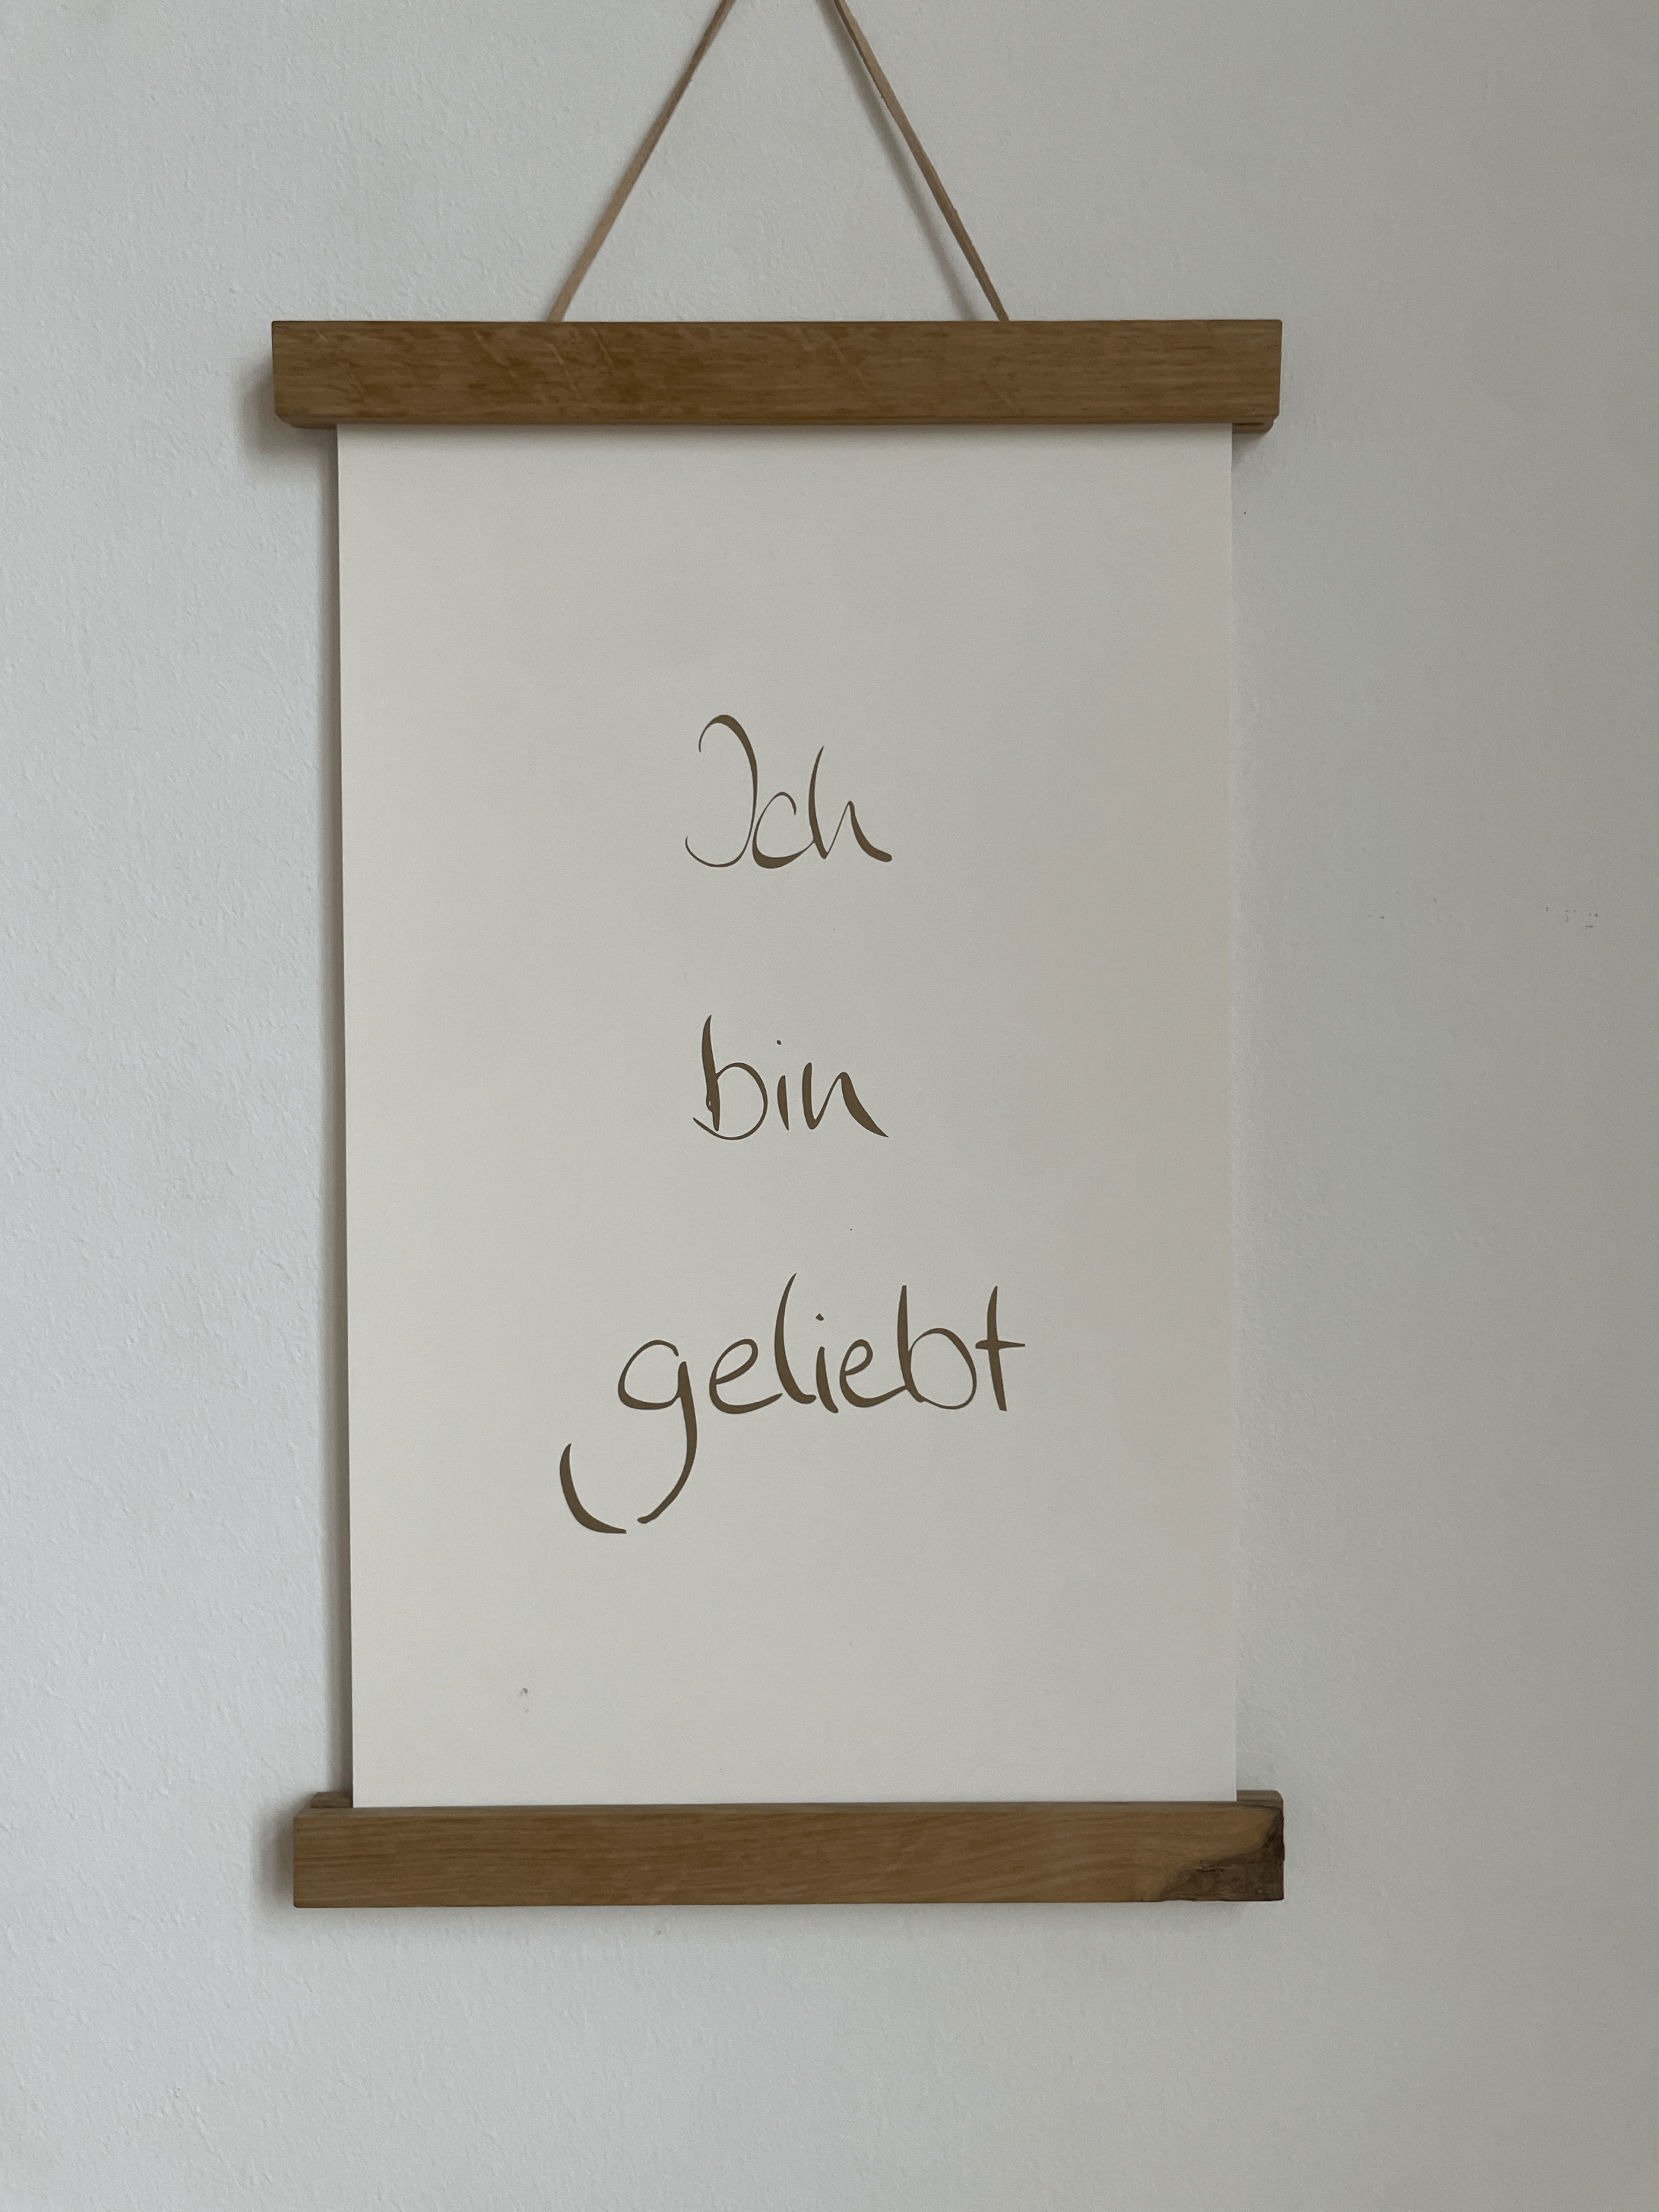 Ich
bin
geliebt